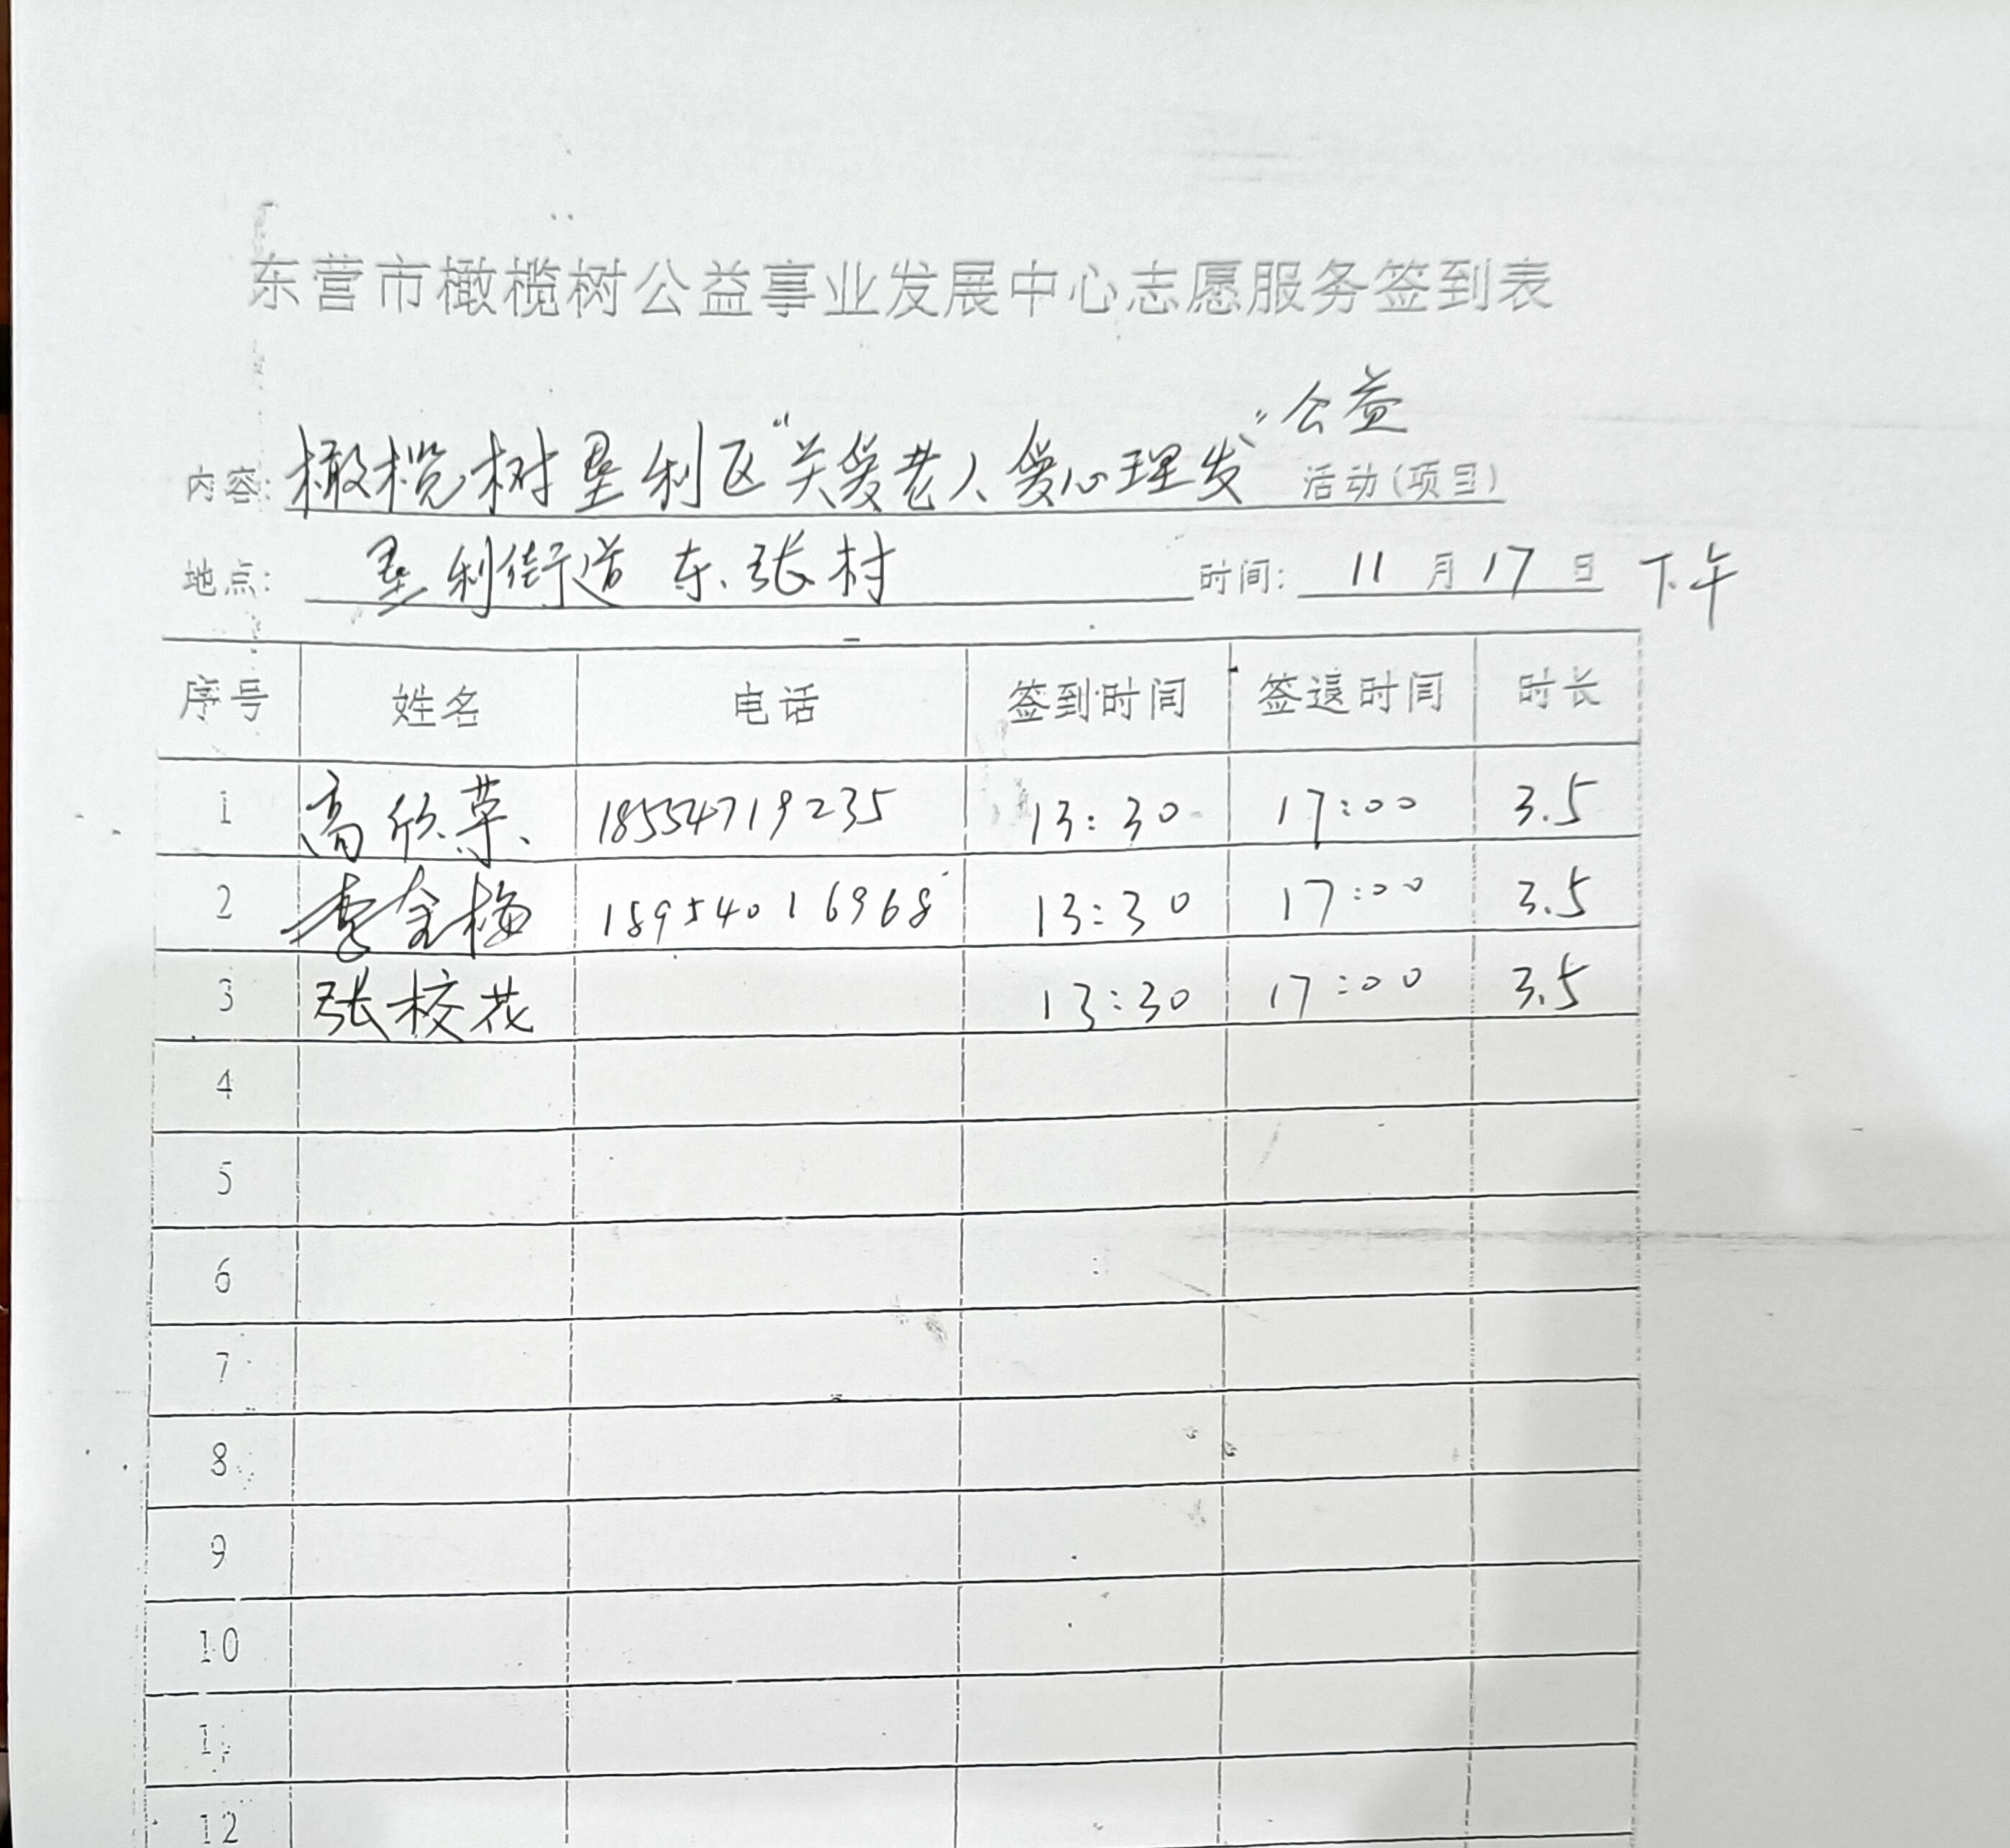 东营市橄榄树公益事业发展中心志愿服务签到表
内容: 橄榄树垦利区“关爱老人爱心理发”公益 活动(项目)
地点: 垦利街道东张村 时间: 11月17日 下午
序号 姓名 电话 签到时间 签退时间 时长
1 高欣荣 18554719235 13:30 17:00 3.5
2 李金梅 18954016968 13:30 17:00 3.5
3 张校花 13:30 17:00 3.5
4
5
6
7
8
9
10
12